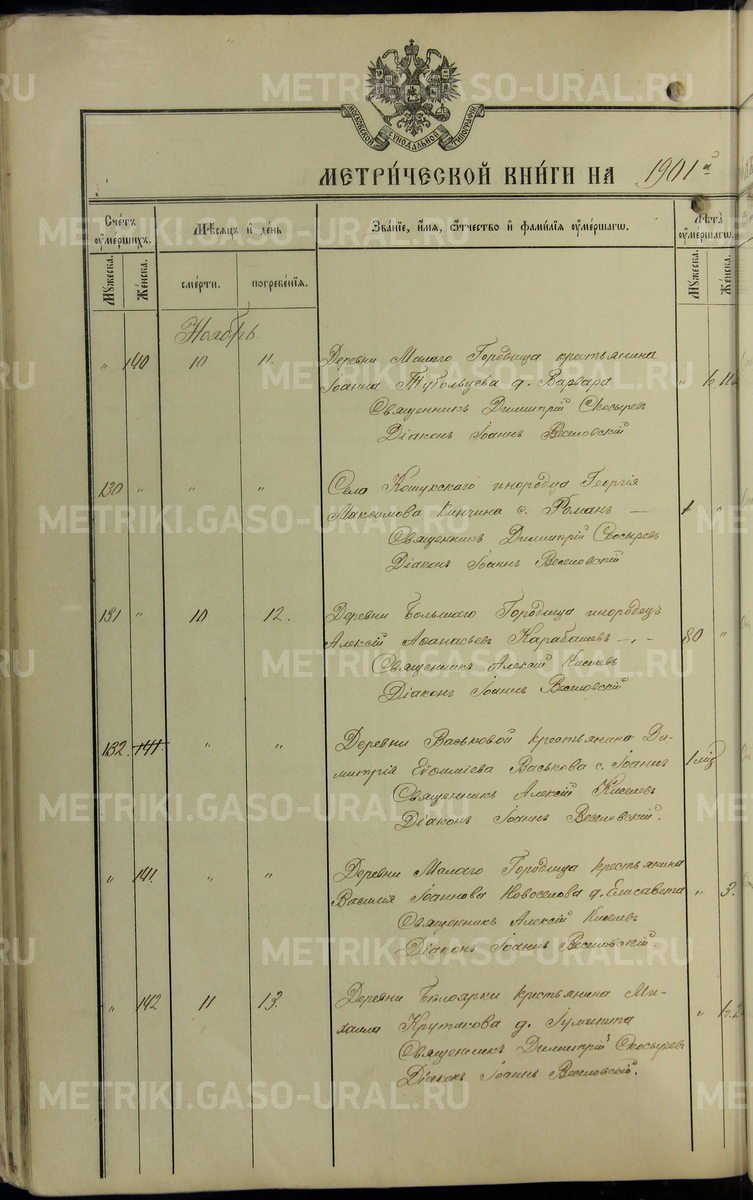 МОСКОВСКОЙ СУНОДАЛЬНОЙ ТИПОГРАФІИ
МЕТРИ́ЧЕСКОЙ КНИ́ГИ НА 1901 й
Сче́тъ ѹ҆ме́ршихъ.
Мѣ́сяцъ и҆ де́нь
Зва́нїе, и҆́мя, ѻ҆́тчество и҆ фами́лїя ѹ҆ме́ршагѡ.
Лѣ́та ѹ҆ме́ршагѡ.
Мꙋ́жеска.
Же́нска.
сме́рти.
погребе́нїя.
Мꙋ́жеска.
Же́нска.
Ноябрь.
" 140 10 11. Деревни Малаго Городища крестьянина
Іоанна Тубольцева д. Варвара "
Священникъ Димитрій Скосыревъ
Діаконъ Іоаннъ Веселовскій
130 " " " Села Кошукскаго инородца Георгія
Максимова Кинчина с. Романъ — "
Священникъ Димитрій Скосыревъ
Діаконъ Іоаннъ Веселовскій
131 " 10 12. Деревни Большаго Городища инородецъ
Алексій Аѳанасьевъ Карабашевъ 80 "
Священникъ Алексій Киселевъ
Діаконъ Іоаннъ Веселовскій
132. 141 " " Деревни Васьковой крестьянина Ди-
митрія Евѳиміева Васькова с. Іоаннъ 1 мѣс
Священникъ Алексій Киселевъ
Діаконъ Іоаннъ Веселовскій.
" 141. " " Деревни Малаго Городища крестьянина
Василія Іоаннова Новоселова д. Елисавета " 3.
Священникъ Алексій Киселевъ
Діаконъ Іоаннъ Веселовскій.
" 142 11 13. Деревни Бѣлоярки крестьянина Ми-
хаила Крутикова д. Іулианія "
Священникъ Димитрій Скосыревъ
Діаконъ Іоаннъ Веселовскій.
METRIKI.GASO-URAL.RU